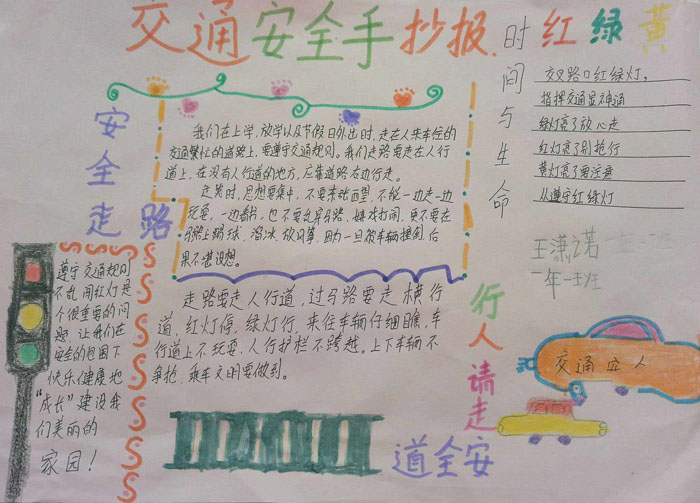 交通安全手抄报
时间与生命
红绿黄
交叉路口红绿灯,
指挥交通显神通
绿灯亮了放心走
红灯亮了别抢行
黄灯亮了要注意
从遵守红绿灯
王潇诺
一年一班
安全走路
我们在上学,放学以及节假日外出时,走在人来车往的
交通繁忙的道路上,要遵守交通规则。我们走路要走在人行
道上,在没有人行道的地方,应靠道路右边行走。
走路时,思想要集中,不要东张西望,不能一边走一边
玩耍,一边看书,也不要乱穿马路、嬉戏打闹,更不要在
马路上踢球、溜冰、放风筝,因为一旦被车辆撞倒后
果不堪设想。
遵守交通规则
不乱闯红灯是
个很重要的问
题,让我们在
安全的包围下
快乐健康地
"成长"建设我
们美丽的
家园!
走路要走人行道,过马路要走横行
道,红灯停,绿灯行,来往车辆仔细瞧,车
行道上不玩耍,人行护栏不跨越。上下车辆不
争抢,乘车文明要做到。
行人请走
道全安
交通安人